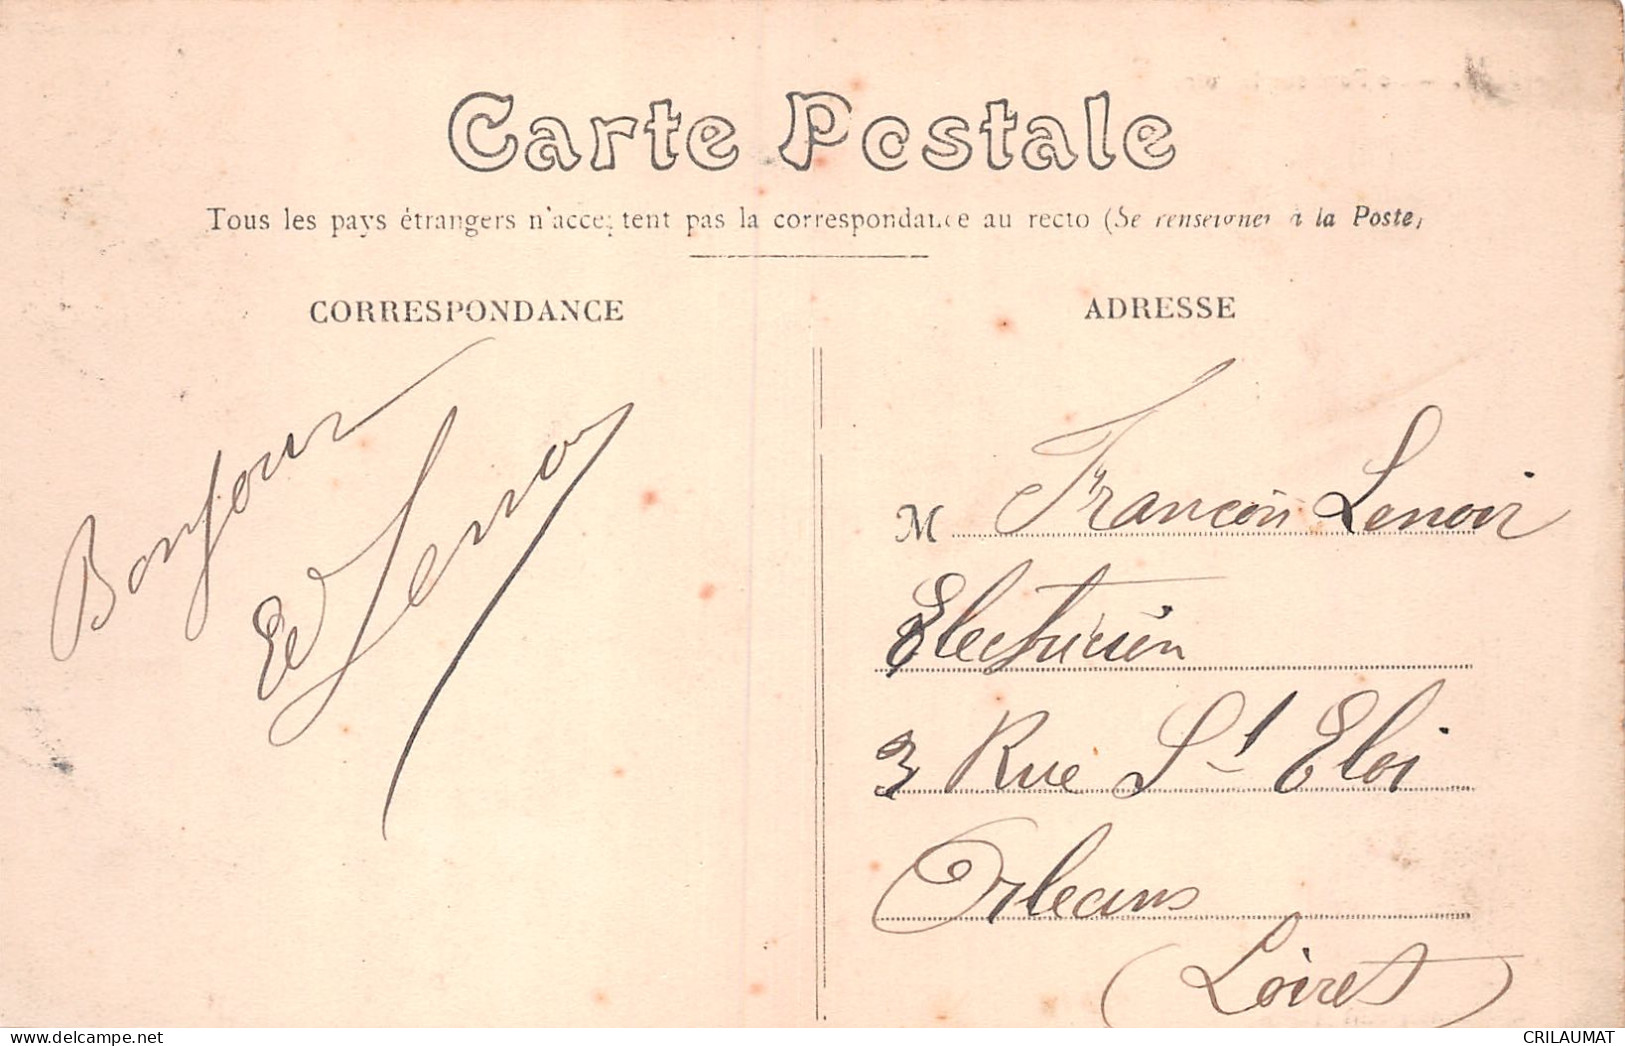 Carte Postale
Tous les pays étrangers n'acceptent pas la correspondance au recto (Se renseigner à la Poste)
CORRESPONDANCE
Bonjour
Ed Leno
ADRESSE
M Françcois Lenoir
Electricien
3 Rue St Eloi
Orleans
(Loiret)
www.delcampe.net
CRILAUMAT